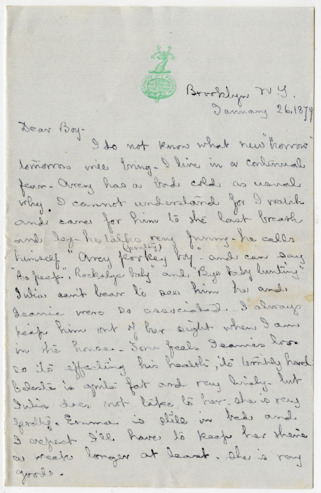 Brooklyn N.Y.
January 26, 1879
Dear Boy-
I do not know what new "horror"
tomorrow will bring. I live in a continual
fear. Avery has a bad cold as usual
why I cannot understand for I watch
and care for him to the last breath
and he talks very funny- he calls
himself Avery and can say
"As peep" "Rockabye baby and "Bye baby bunting"
Julia can't bear to see him he and
Jeannie were so associated. I always
keep him out of her sight when I am
in the house. feels Jeannies loss
so its effecting his health, its
is quite fat and very lively- but
Julia does not take to her. she is very
Emma is still in bed and
I expect I'll have to keep her there
a week longer at least. She is very
good.